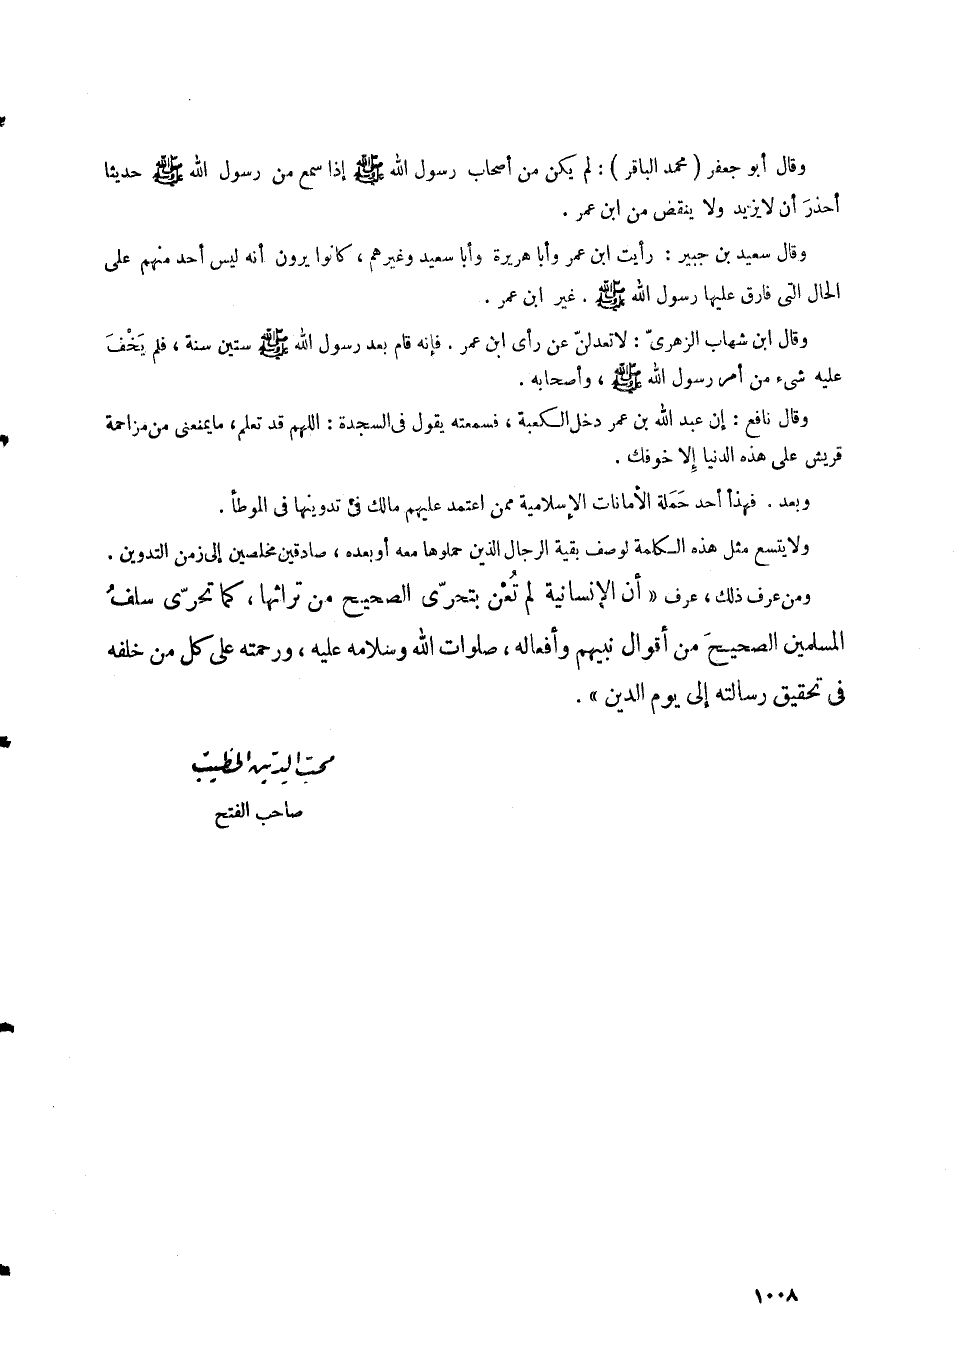 وقال أبو جعفر ( محمد الباقر ) : لم يكن من أصحاب رسول الله ﷺ إذا سمع من رسول الله ﷺ حديثا
أحذرَ أن لايزيد ولا ينقض من ابن عمر .
وقال سعيد بن جبير : رأيت ابن عمر وأبا هريرة وأبا سعيد وغيرهم ، كانوا يرون أنه ليس أحد منهم على
الحال التى فارق عليها رسول الله ﷺ . غير ابن عمر .
وقال ابن شهاب الزهرىّ : لاتعدلنّ عن رأى ابن عمر . فإنه قام بعد رسول الله ﷺ ستين سنة ، فلم يَخْفَ
عليه شىء من أمر رسول الله ﷺ ، وأصحابه .
وقال نافع : إن عبد الله بن عمر دخل الكعبة ، فسمعته يقول فى السجدة : اللهم قد تعلم، مايمنعنى من مزاحمة
قريش على هذه الدنيا إلا خوفك .
وبعد . فهذا أحد حَمَلة الأمانات الإسلامية ممن اعتمد عليهم مالك فى تدوينها فى الموطأ .
ولايتسع مثل هذه الكلمة لوصف بقية الرجال الذين حملوها معه أو بعده ، صادقين مخلصين إلى زمن التدوين .
ومن عرف ذلك ، عرف « أن الإنسانية لم تُعْن بتحرّى الصحيح من تراثها ، كما تحرّى سلفُ
المسلمين الصحيحَ من أقوال نبيهم وأفعاله ، صلوات الله وسلامه عليه ، ورحمته على كل من خلفه
فى تحقيق رسالته إلى يوم الدين » .
محبّ الدين الخطيب
صاحب الفتح
١٠٠٨